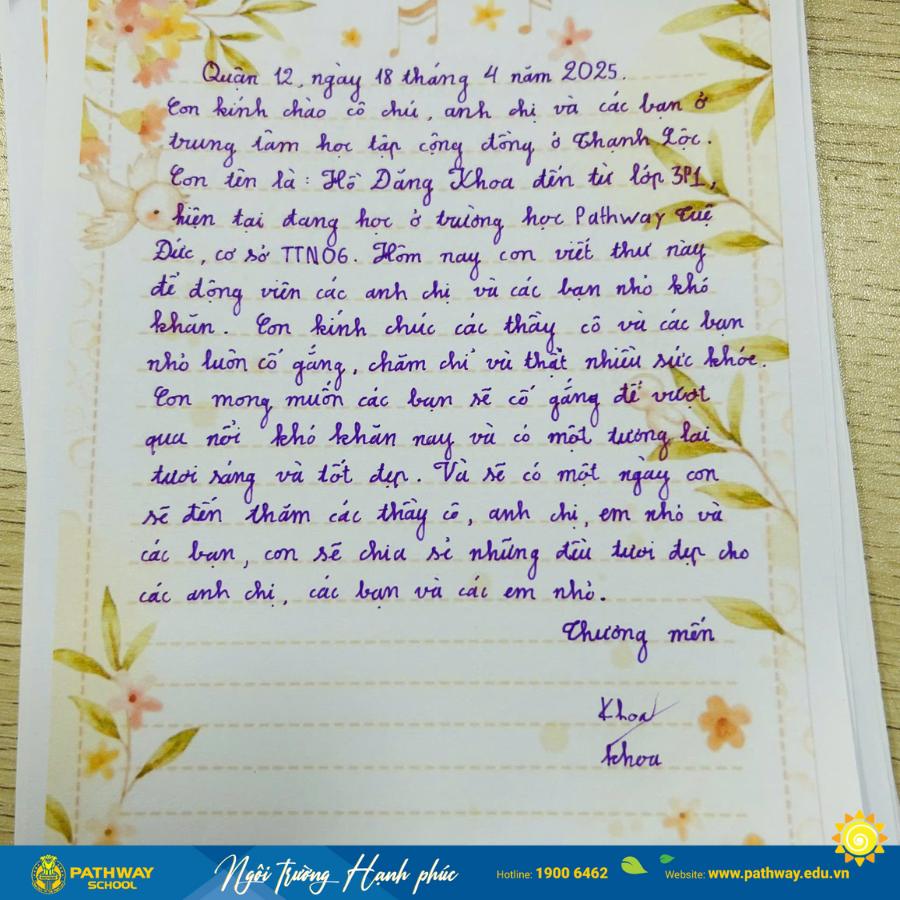 Quận 12, ngày 18 tháng 4 năm 2025.
Con kính chào cô chú, anh chị và các bạn ở
trung tâm học tập cộng đồng ở Thạnh Lộc.
Con tên là : Hồ Đăng Khoa đến từ lớp 3P1,
hiện tại đang học ở trường học Pathway Tuệ
Đức, cơ sở TTN06. Hôm nay con viết thư này
để động viên các anh chị và các bạn nhỏ khó
khăn. Con kính chúc các thầy cô và các bạn
nhỏ luôn cố gắng, chăm chỉ và thật nhiều sức khỏe.
Con mong muốn các bạn sẽ cố gắng để vượt
qua nỗi khó khăn nay và có một tương lai
tươi sáng và tốt đẹp. Và sẽ có một ngày con
sẽ đến thăm các thầy cô, anh chị, em nhỏ và
các bạn, con sẽ chia sẻ những điều tươi đẹp cho
các anh chị, các bạn và các em nhỏ.
Thương mến
Khoa
Khoa
PATHWAY
SCHOOL
Ngôi Trường Hạnh phúc
Hotline: 1900 6462
Website: www.pathway.edu.vn